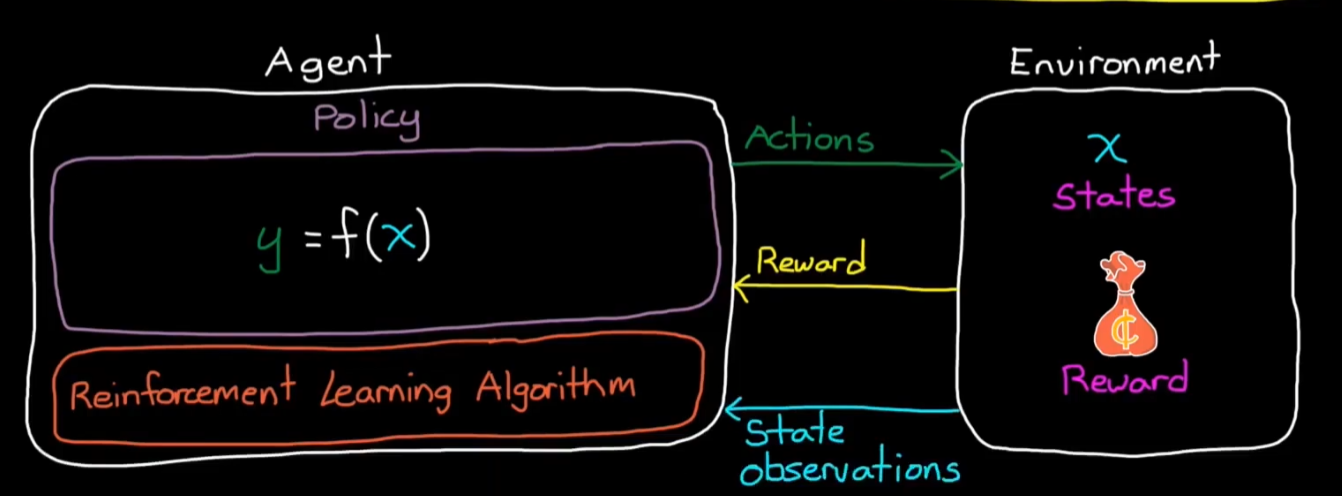 Agent
Policy
y = f(x)
Reinforcement Learning Algorithm
Actions
Reward
State
observations
Environment
x
States
¢
Reward